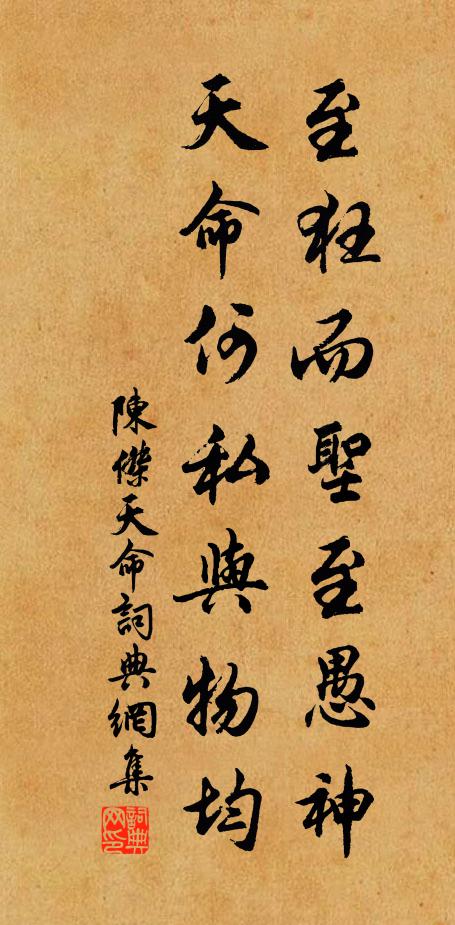 至狂而聖至愚神
天命何私與物均
陳傑天命詞典網集
詞典网印